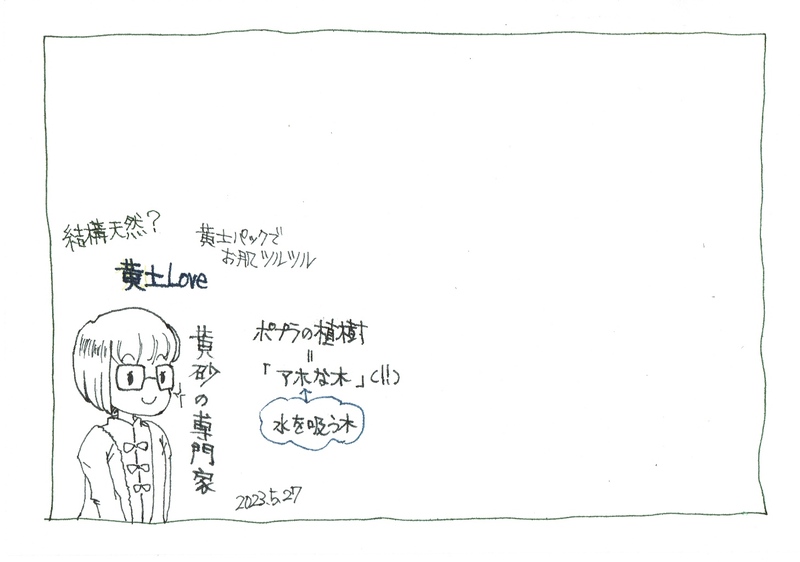 結構天然?
黄土パックで
お肌ツルツル
黄土Love
黄砂の専門家
ポプラの植樹
=
「アホな木」(!!)
↑
水を吸う木
2023.5.27